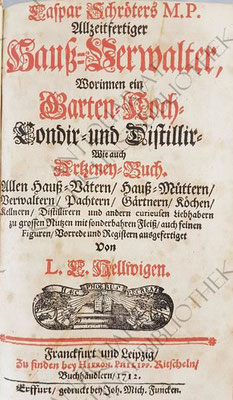 Caspar Schröters M.P.
Allzeitfertiger
Hauß-Verwalter,
Worinnen ein
Garten-Koch-
Condir-und Distillir-
Wie auch
Artzeney-Buch.
Allen Hauß-Vätern/ Hauß-Müttern/
Verwaltern/ Pachtern/ Gärtnern/ Köchen/
Kellnern/ Distillirern und andern curieusen Liebhabern
zu grossen Nutzen mit sonderbahren Fleiß/ auch feinen
Figuren/ Vorrede und Registern ausgefertiget
Von
L. C. Hellwigen.
Franckfurt und Leipzig/
Zu finden bey Hieron. Philipp. Ritscheln/
Buchhändlern/ 1712.
Erffurt/ gedruckt bey Joh. Mich. Funcken.